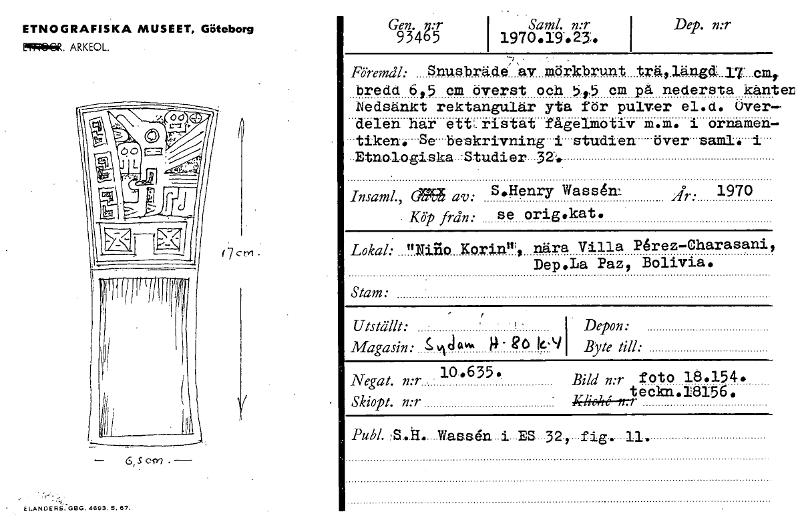 ETNOGRAFISKA MUSEET, Göteborg
ETNOGR. ARKEOL.
17cm.
6,5cm.
ELANDERS, GBG. 4693. 5. 67.
Gen. n:r 93465
Saml. n:r 1970.19.23.
Dep. n:r
Föremål: Snusbräde av mörkbrunt trä, längd 17 cm,
bredd 6,5 cm överst och 5,5 cm på nedersta kanten
Nedsänkt rektangulär yta för pulver el.d. Över-
delen har ett ristat fågelmotiv m.m. i ornamen-
tiken. Se beskrivning i studien över saml. i
Etnologiska Studier 32.
Insaml., Gåva av: S.Henry Wassén År: 1970
Köp från: se orig.kat.
Lokal: "Niño Korin", nära Villa Pérez-Charasani,
Dep.La Paz, Bolivia.
Stam:
Utställt: Depon:
Magasin: Sydam H-80 k.4 Byte till:
Negat. n:r 10.635. Bild n:r foto 18.154.
Skiopt. n:r Kliché n:r teckn.18156.
Publ. S.H. Wassén i ES 32, fig. 11.